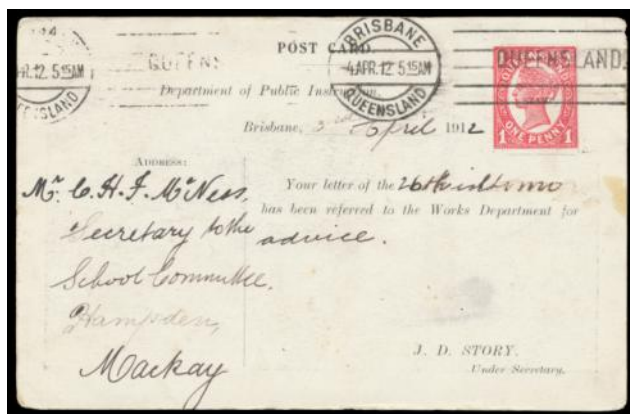 POST CARD.
BRISBANE
4 APR. 12 5 15 AM
QUEENSLAND
QUEENSLAND
QUEENSLAND
ONE PENNY
1 1
R. 12 5 15 AM
QUEENS
Department of Public Instruction,
Brisbane, 3rd April 1912
ADDRESS:
Mr. C. H. F. McNess,
Secretary to the
School Committee,
Hampden,
Mackay
Your letter of the 26th
has been referred to the Works Department for
advice.
J. D. STORY.
Under Secretary.